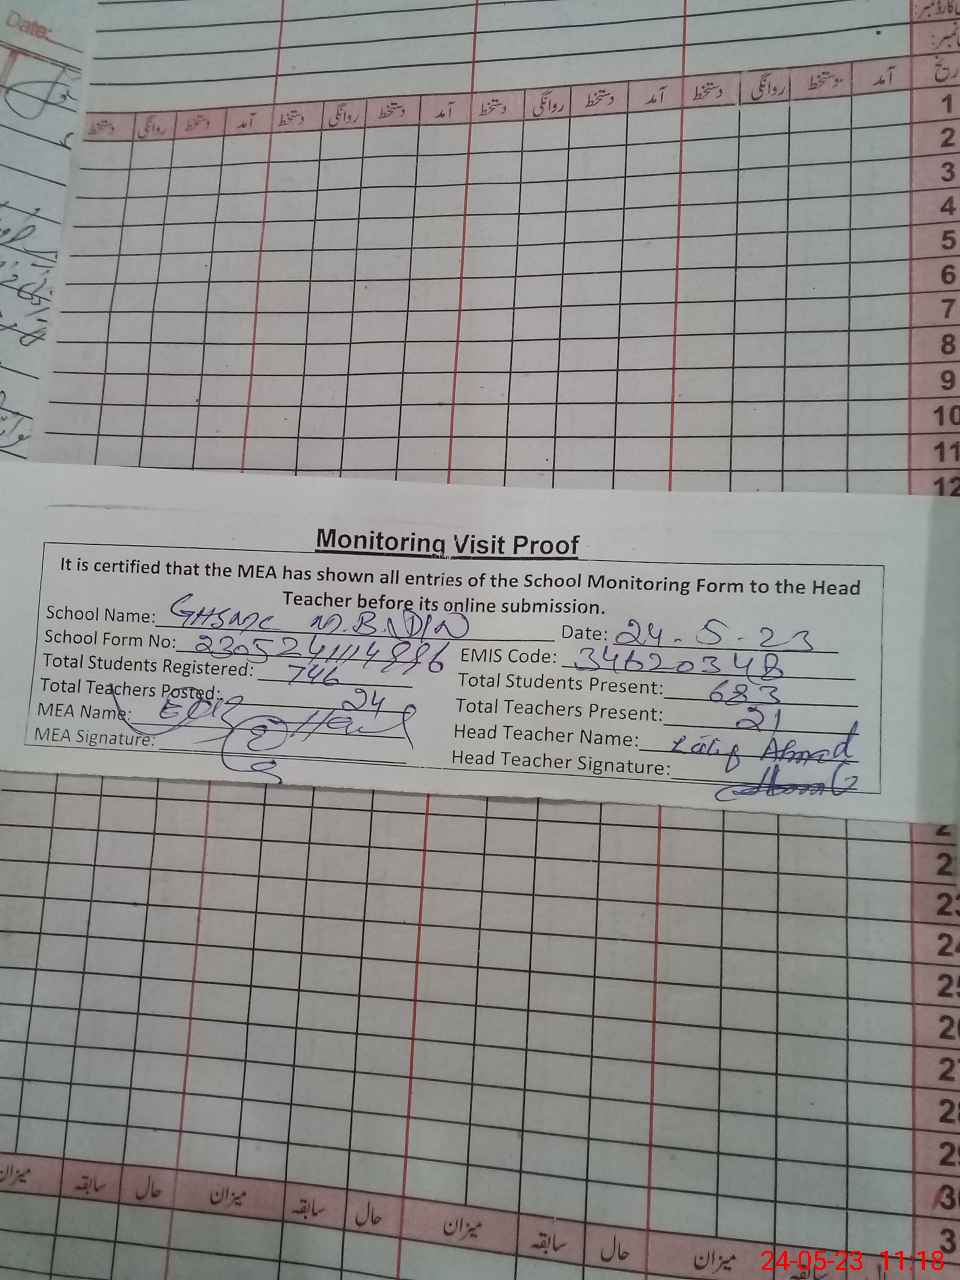 Date:
دستخط روانگی دستخط آمد دستخط روانگی دستخط آمد دستخط روانگی دستخط آمد دستخط روانگی دستخط آمد
1
2
3
4
5
6
7
8
9
10
11
12
Monitoring Visit Proof
It is certified that the MEA has shown all entries of the School Monitoring Form to the Head
Teacher before its online submission.
School Name: GHSMC M.B.DIN Date: 24-5-23
School Form No: EMIS Code: 34620348
Total Students Registered: 746 Total Students Present: 683
Total Teachers Posted: 24 Total Teachers Present: 21
MEA Name: Head Teacher Name: Latif Ahmad
MEA Signature: Head Teacher Signature:
2
23
24
25
26
27
28
29
30
3
میزان سابقہ حال میزان سابقہ حال میزان سابقہ حال میزان سابقہ
24-05-23 11:18